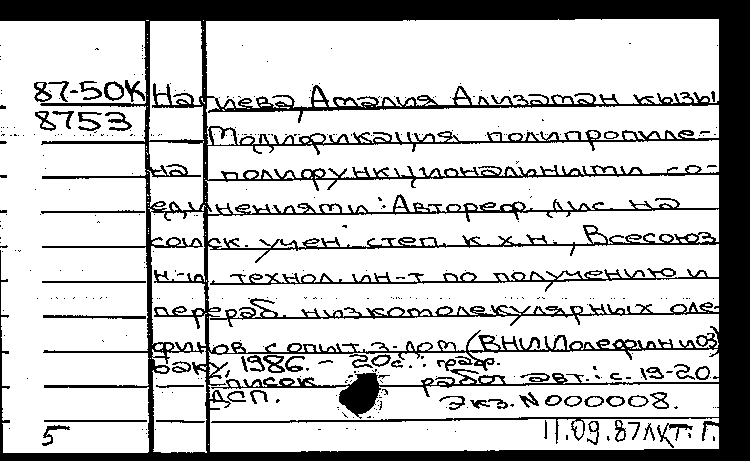 87-50К Нагиева, Амалия Ализаман кызы.
8753 Модификация полипропиле-
на полифункциональными со-
единениями: Автореф. дис. на
соиск. учен. степ. к.х.н., Всесоюз.
н.-и. технол. ин-т по получению и
перераб. низкомолекулярных оле-
финов с опыт. з-дом (ВНИИолефиниОЗ)
Баку, 1986. - 20с.: граф.
Список работ авт.: с. 19-20.
ДСП. Экз. N 000008.
5 11.09.87